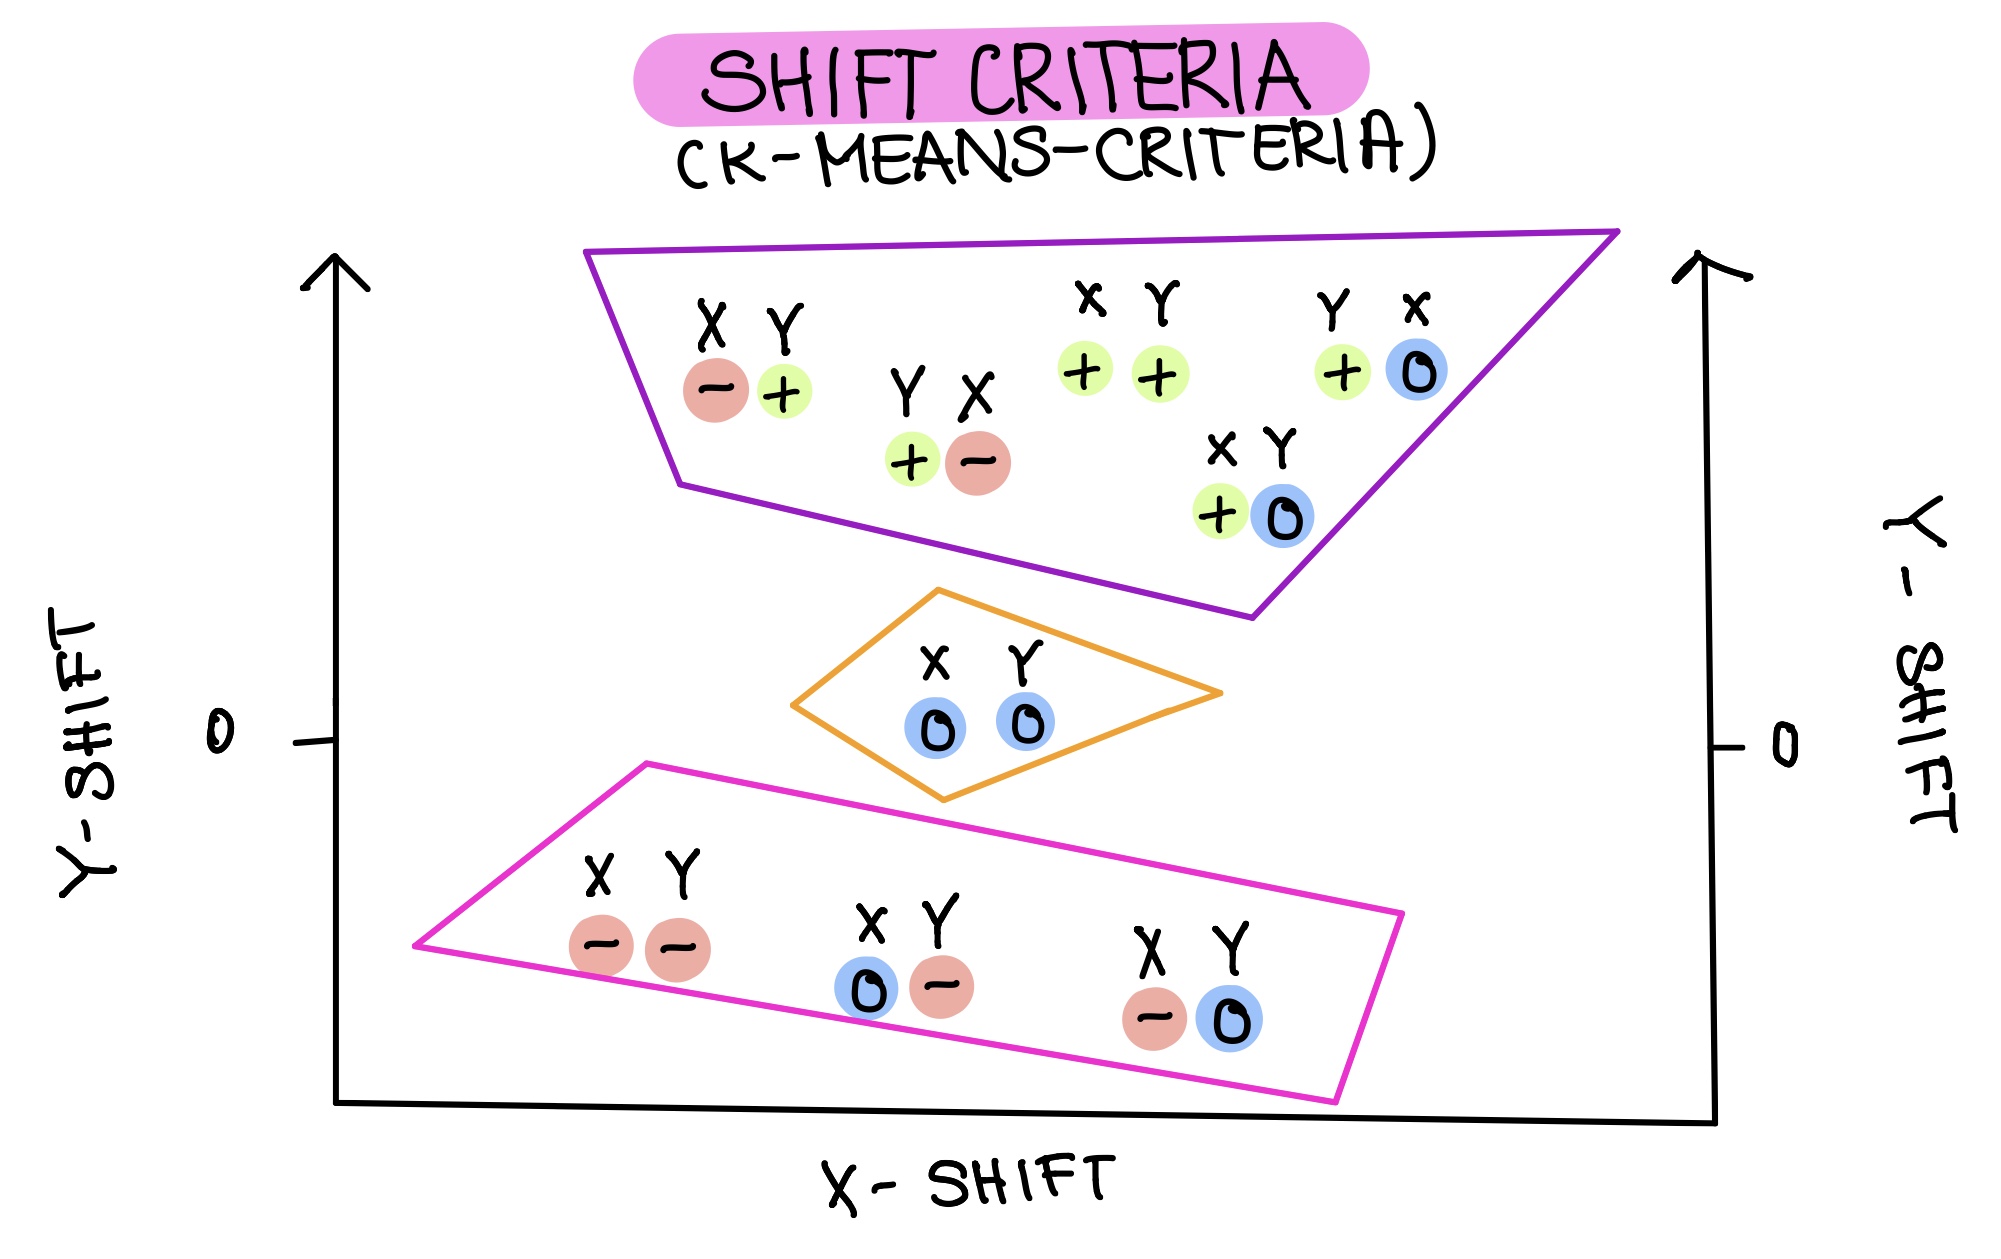 SHIFT CRITERIA
(K-MEANS-CRITERIA)
X Y
- +
Y X
+ -
X Y
+ +
Y X
+ 0
X Y
+ 0
X Y
0 0
X Y
- -
X Y
0 -
X Y
- 0
Y-SHIFT
0
0
Y - SHIFT
X- SHIFT